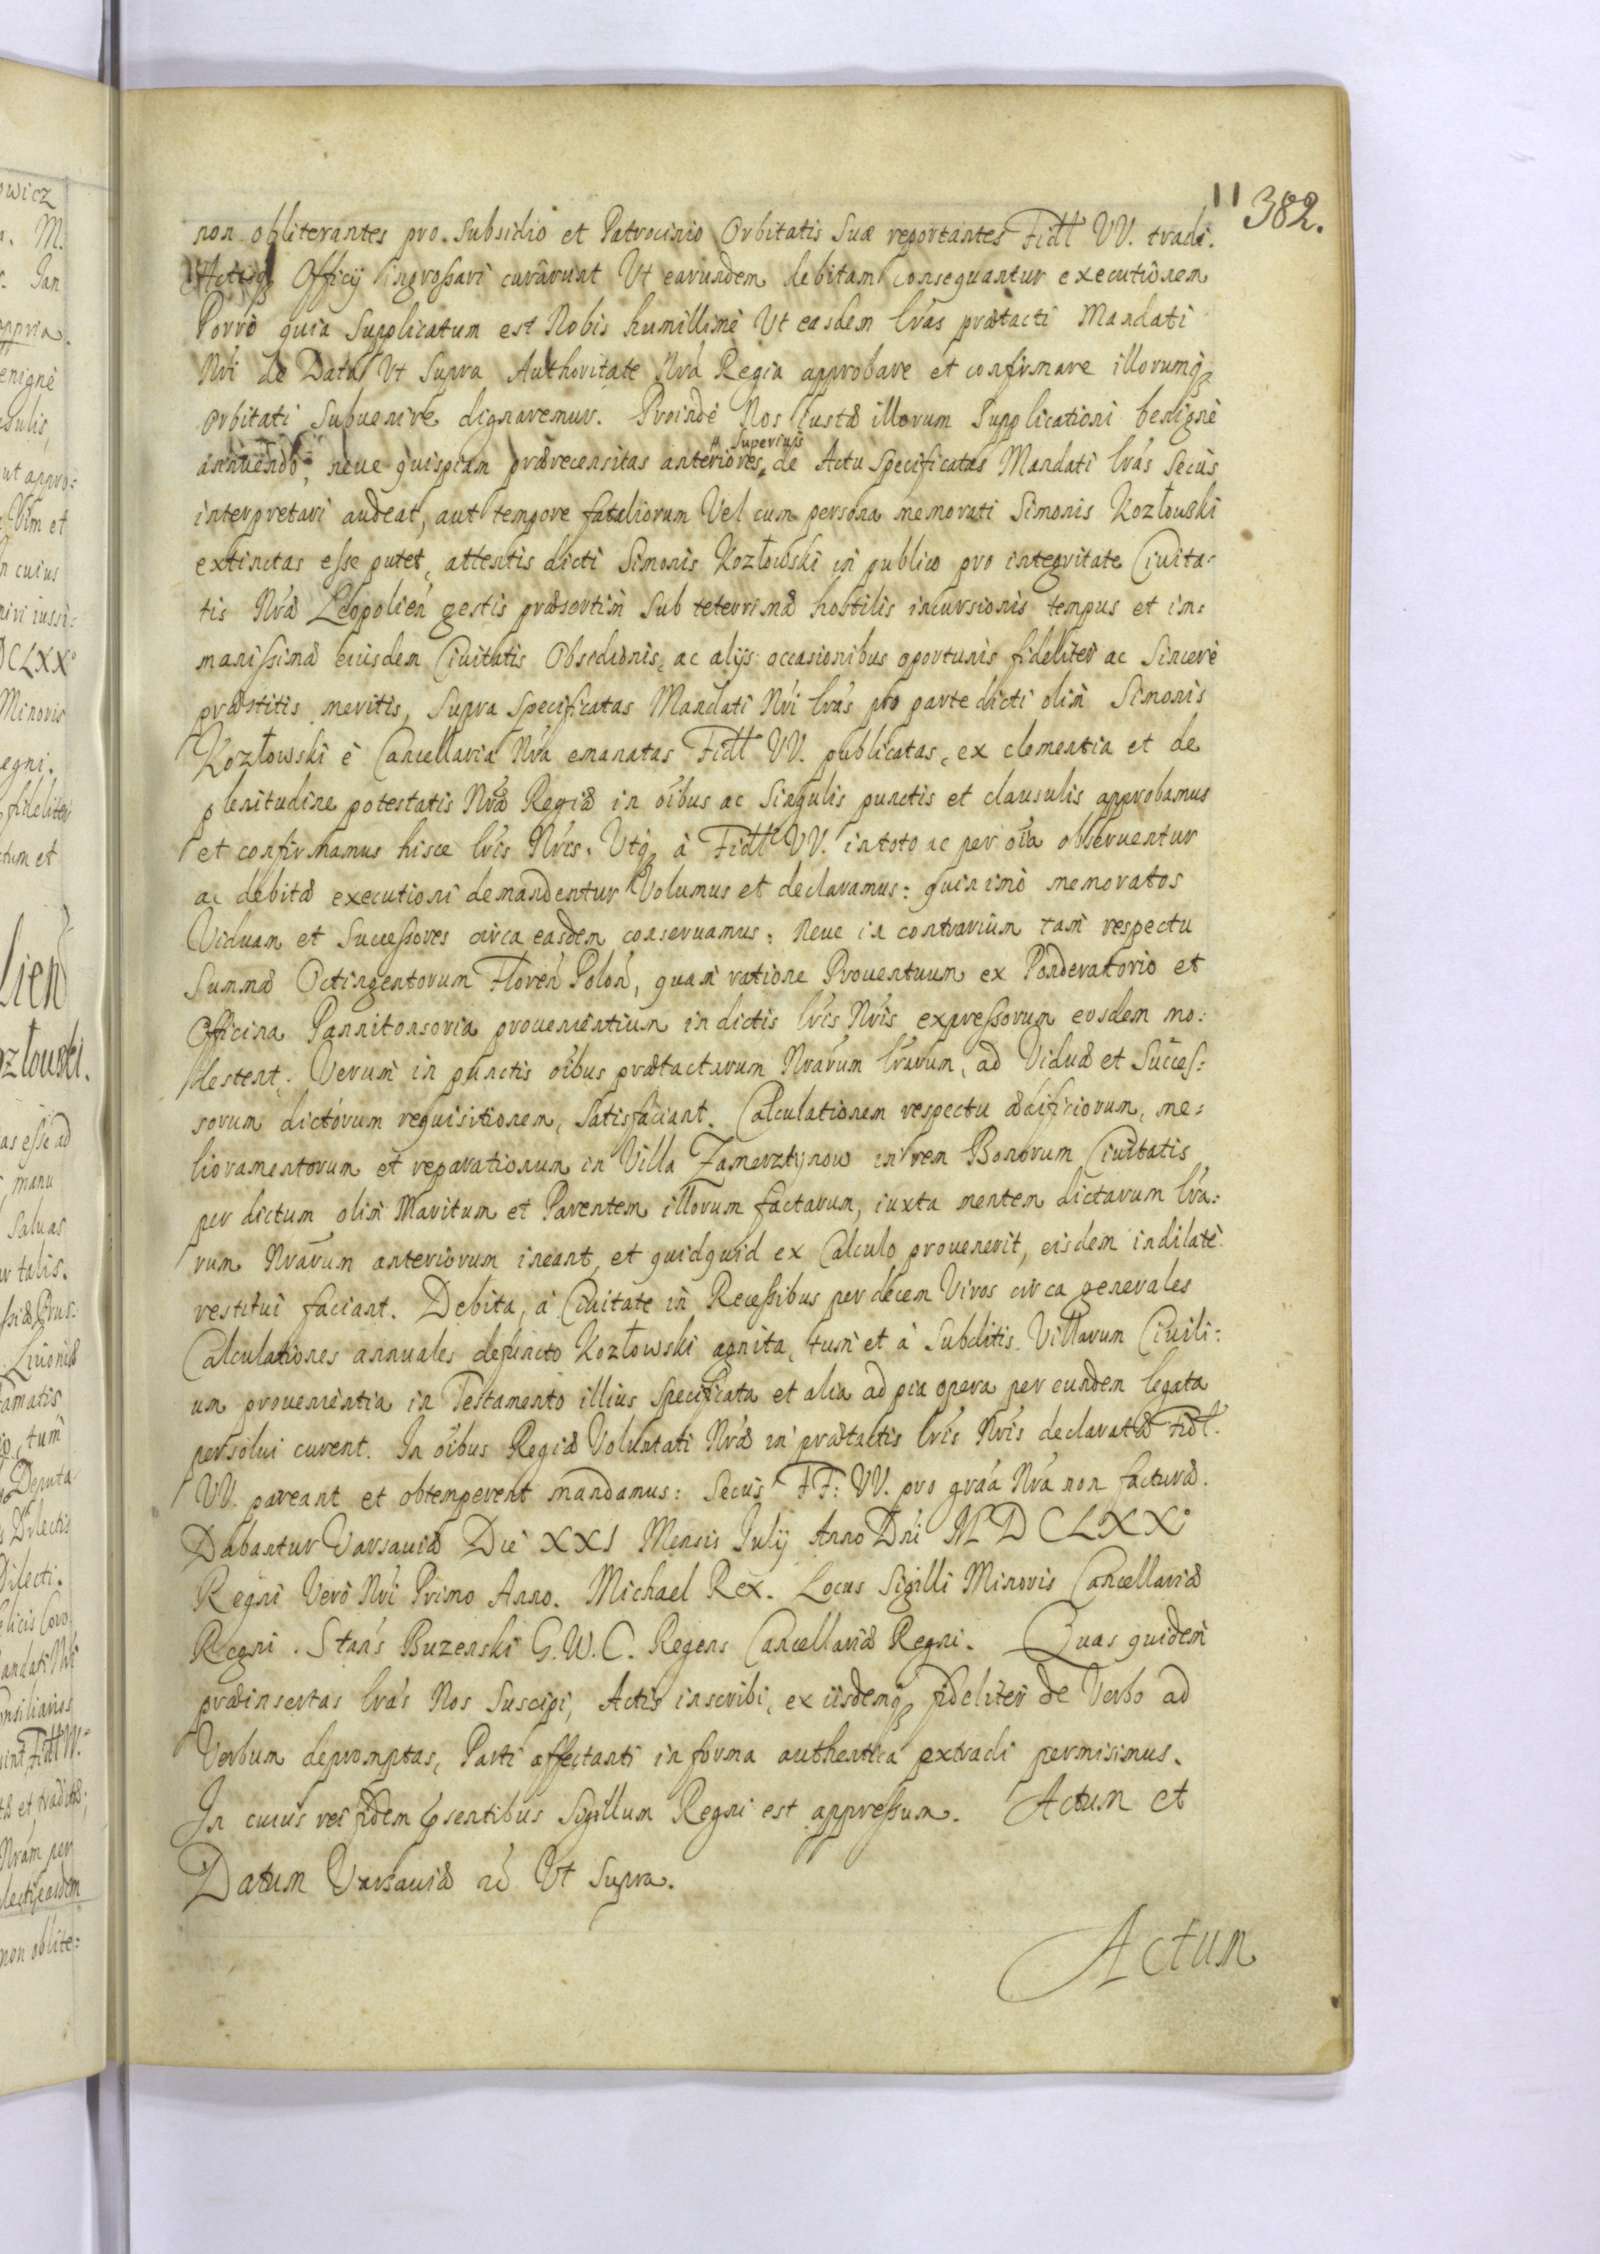 11 382.
non obliterantes pro Subsidio et Patrocinio Orbitatis Suæ reportantes Fidtt VV. tradi.
Actisq3 Officij ingrossari curârunt Vt earundem debitam consequantur executionem
Porrò quia Supplicatum est Nobis humillimè Vt easdem l͠ras prætacti Mandati
Nr͠i de Data Vt Supra Authoritate Nr͠a Regia approbare et confirmare illorumq3
Orbitati Subuenire dignaremur. Proinde Nos iustæ illorum Supplicationi benignè
annuendo, neue quispiam præרecensitas anteriores Superius de Actu Specificatas Mandati l͠ras Secùs
interpretari audeat, aut tempore fataliorum Vel cum persona memorati Simonis Kozłowski
extinctas esse putet, attentis dicti Simonis Kozłowski in publico pro integritate Ciuita-
tis Nr͠æ Leopolien͠ gestis præsertim Sub teterrimæ hostilis incursionis tempus et im:
manissimæ eiusdem Ciuitatis Obsidionis, ac alijs occasionibus oportunis fideliter ac Sincerè
præstitis meritis, Supra Specificatas Mandati Nr͠i l͠ras pro parte dicti olim Simonis
Kozłowski è Cancellaria Nr͠a emanatas Fidtt VV. publicatas, ex clementia et de
plenitudine potestatis Nr͠æ Regiæ in o͠ibus ac Singulis punctis et clausulis approbamus
et confirmamus hisce l͠ris Nr͠is. Vtq3 à Fidtt VV. in toto ac per o͠ia obseruentur
ac debitæ executioni demandentur Volumus et declaramus: quinimò memoratos
Viduam et Successores circa easdem conseruamus: neue in contrarium tam respectu
Summæ Octingentorum Floren͠ Polon͠, quam ratione Prouentuum ex Ponderatorio et
Officina Pannitonsoria prouenientium in dictis l͠ris Nr͠is expressorum eosdem mo:
lestent. Verum in punctis o͠ibus prætactarum Nr͠arum l͠rarum, ad Viduæ et Succes:
sorum dictorum requisitionem, Satisfaciant. Calculationem respectu ædificiorum, me:
lioramentorum et reparationum in Villa Zamerztynow in rem Bonorum Ciuitatis
per dictum olim Maritum et Parentem illorum factarum, iuxta mentem dictarum l͠ra:
rum Nr͠arum anteriorum ineant, et quidquid ex Calculo prouenerit, eisdem indilatè
restitui faciant. Debita, à Ciuitate in Recessibus per decem Viros circa generales
Calculationes annuales defuncto Kozłowski agnita, tum et à Subditis Villarum Ciuili:
um prouenientia in Testamento illius Specificata et alia ad pia opera per eundem legata
persolui curent. In o͠ibus Regiæ Voluntati Nr͠æ in prætactis l͠ris Nr͠is declaratæ Fidtt.
VV. pareant et obtemperent mandamus: Secùs FF: VV. pro gra͠a Nr͠a non facturæ.
Dabantur Varsauiæ Die XXI Mensis Iulij Anno Dn͠i MDCLXX°
Regni Verò Nr͠i Primo Anno. Michael Rex. Locus Sigilli Minoris Cancellariæ
Regni. Stan͠s Buzenski G.W.C. Regens Cancellariæ Regni. Quas quidem
præinsertas l͠ras Nos Suscipi, Actis inscribi, ex iisdemq3 fideliter de Verbo ad
Verbum depromptas, Parti affectanti in forma authentica extradi permisimus.
In cuius rei fidem p͠sentibus Sigillum Regni est appressum. Actum et
Datum Varsauiæ ad Vt Supra.
Actum